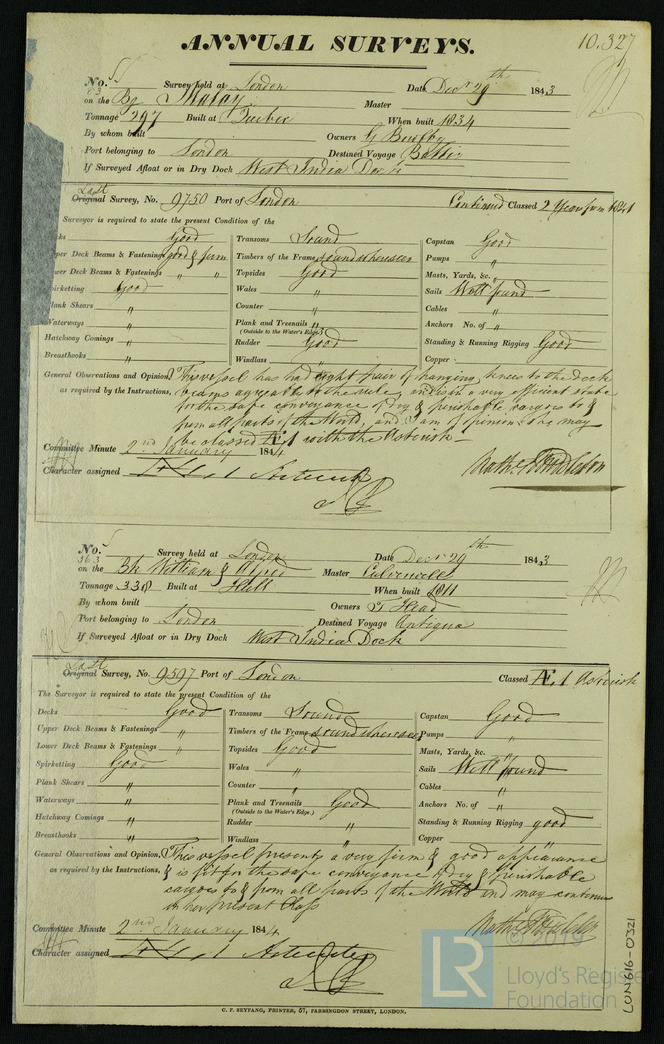 ANNUAL SURVEYS.
10.327
No. Survey held at London Date Decr 29th 1843
on the Bg Malay Master
Tonnage 297 Built at When built 1834
By whom built Owners G
Port belonging to London Destined Voyage
If Surveyed Afloat or in Dry Dock West India Dock
Last
Original Survey, No. 9750 Port of London Continued Classed 2 Years from 1841
Surveyor is required to state the present Condition of the
Good Transoms Sound Capstan Good
pper Deck Beams & Fastenings good & firm Timbers of the Frame Pumps "
ower Deck Beams & Fastenings " " Topsides Good Masts, Yards, &c. "
Spirketting Good Wales " Sails Well found
Plank Shears " Counter " Cables "
Waterways " Plank and Treenails " Anchors No. of "
(Outside to the Water's Edge.)
Hatchway Comings " Rudder Good Standing & Running Rigging Good
Breasthooks " Windlass " Copper
General Observations and Opinion, This vessel has had eight pair of hanging knees to the deck
as required by the Instructions, beams agreeably to the rule, and is in a very efficient state
for the safe conveyance of dry & perishable cargoes to &
from all parts of the World, and I am of opinion she may
be classed Æ 1 with the Asterisk
Committee Minute 2nd January 1844
Character assigned
No. Survey held at London Date Decr 29th 1843
363 on the Bk William & Alfred Master
Tonnage 330 Built at Hull When built 1811
By whom built Owners T Head
Port belonging to London Destined Voyage Antigua
If Surveyed Afloat or in Dry Dock West India Dock
Last
Original Survey, No. 9597 Port of London Classed Æ. 1 Asterisk
The Surveyor is required to state the present Condition of the
Decks Good Transoms Sound Capstan Good
Upper Deck Beams & Fastenings " Timbers of the Frame Pumps "
Lower Deck Beams & Fastenings " Topsides Good Masts, Yards, &c. "
Spirketting Good Wales " Sails Well found
Plank Shears " Counter " Cables "
Waterways " Plank and Treenails Good Anchors No. of "
(Outside to the Water's Edge.)
Hatchway Comings " Rudder " Standing & Running Rigging good
Breasthooks " Windlass " Copper "
General Observations and Opinion, This vessel presents a very firm & good appearance
as required by the Instructions, & is fit for the safe conveyance of dry & perishable
cargoes to & from all parts of the World and may continue
in her present Class
Committee Minute 2nd January 1844
Character assigned
C. F. SEYFANG, PRINTER, 57, FARRINGDON STREET, LONDON.
LON616-0321
LR
© 2019
Lloyd's Register
Foundation